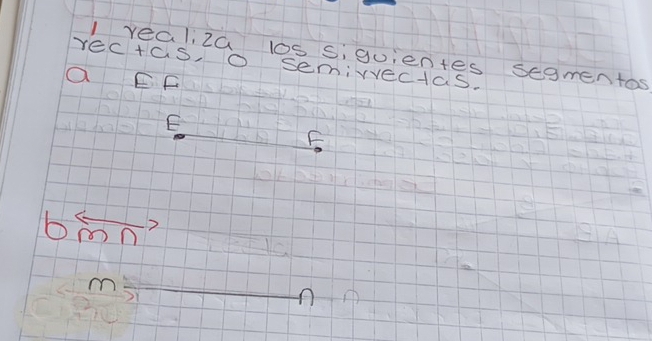 1 realiza los siguientes segmentos
rectas, o semirrectas.
a EF
E F
b mn
m n